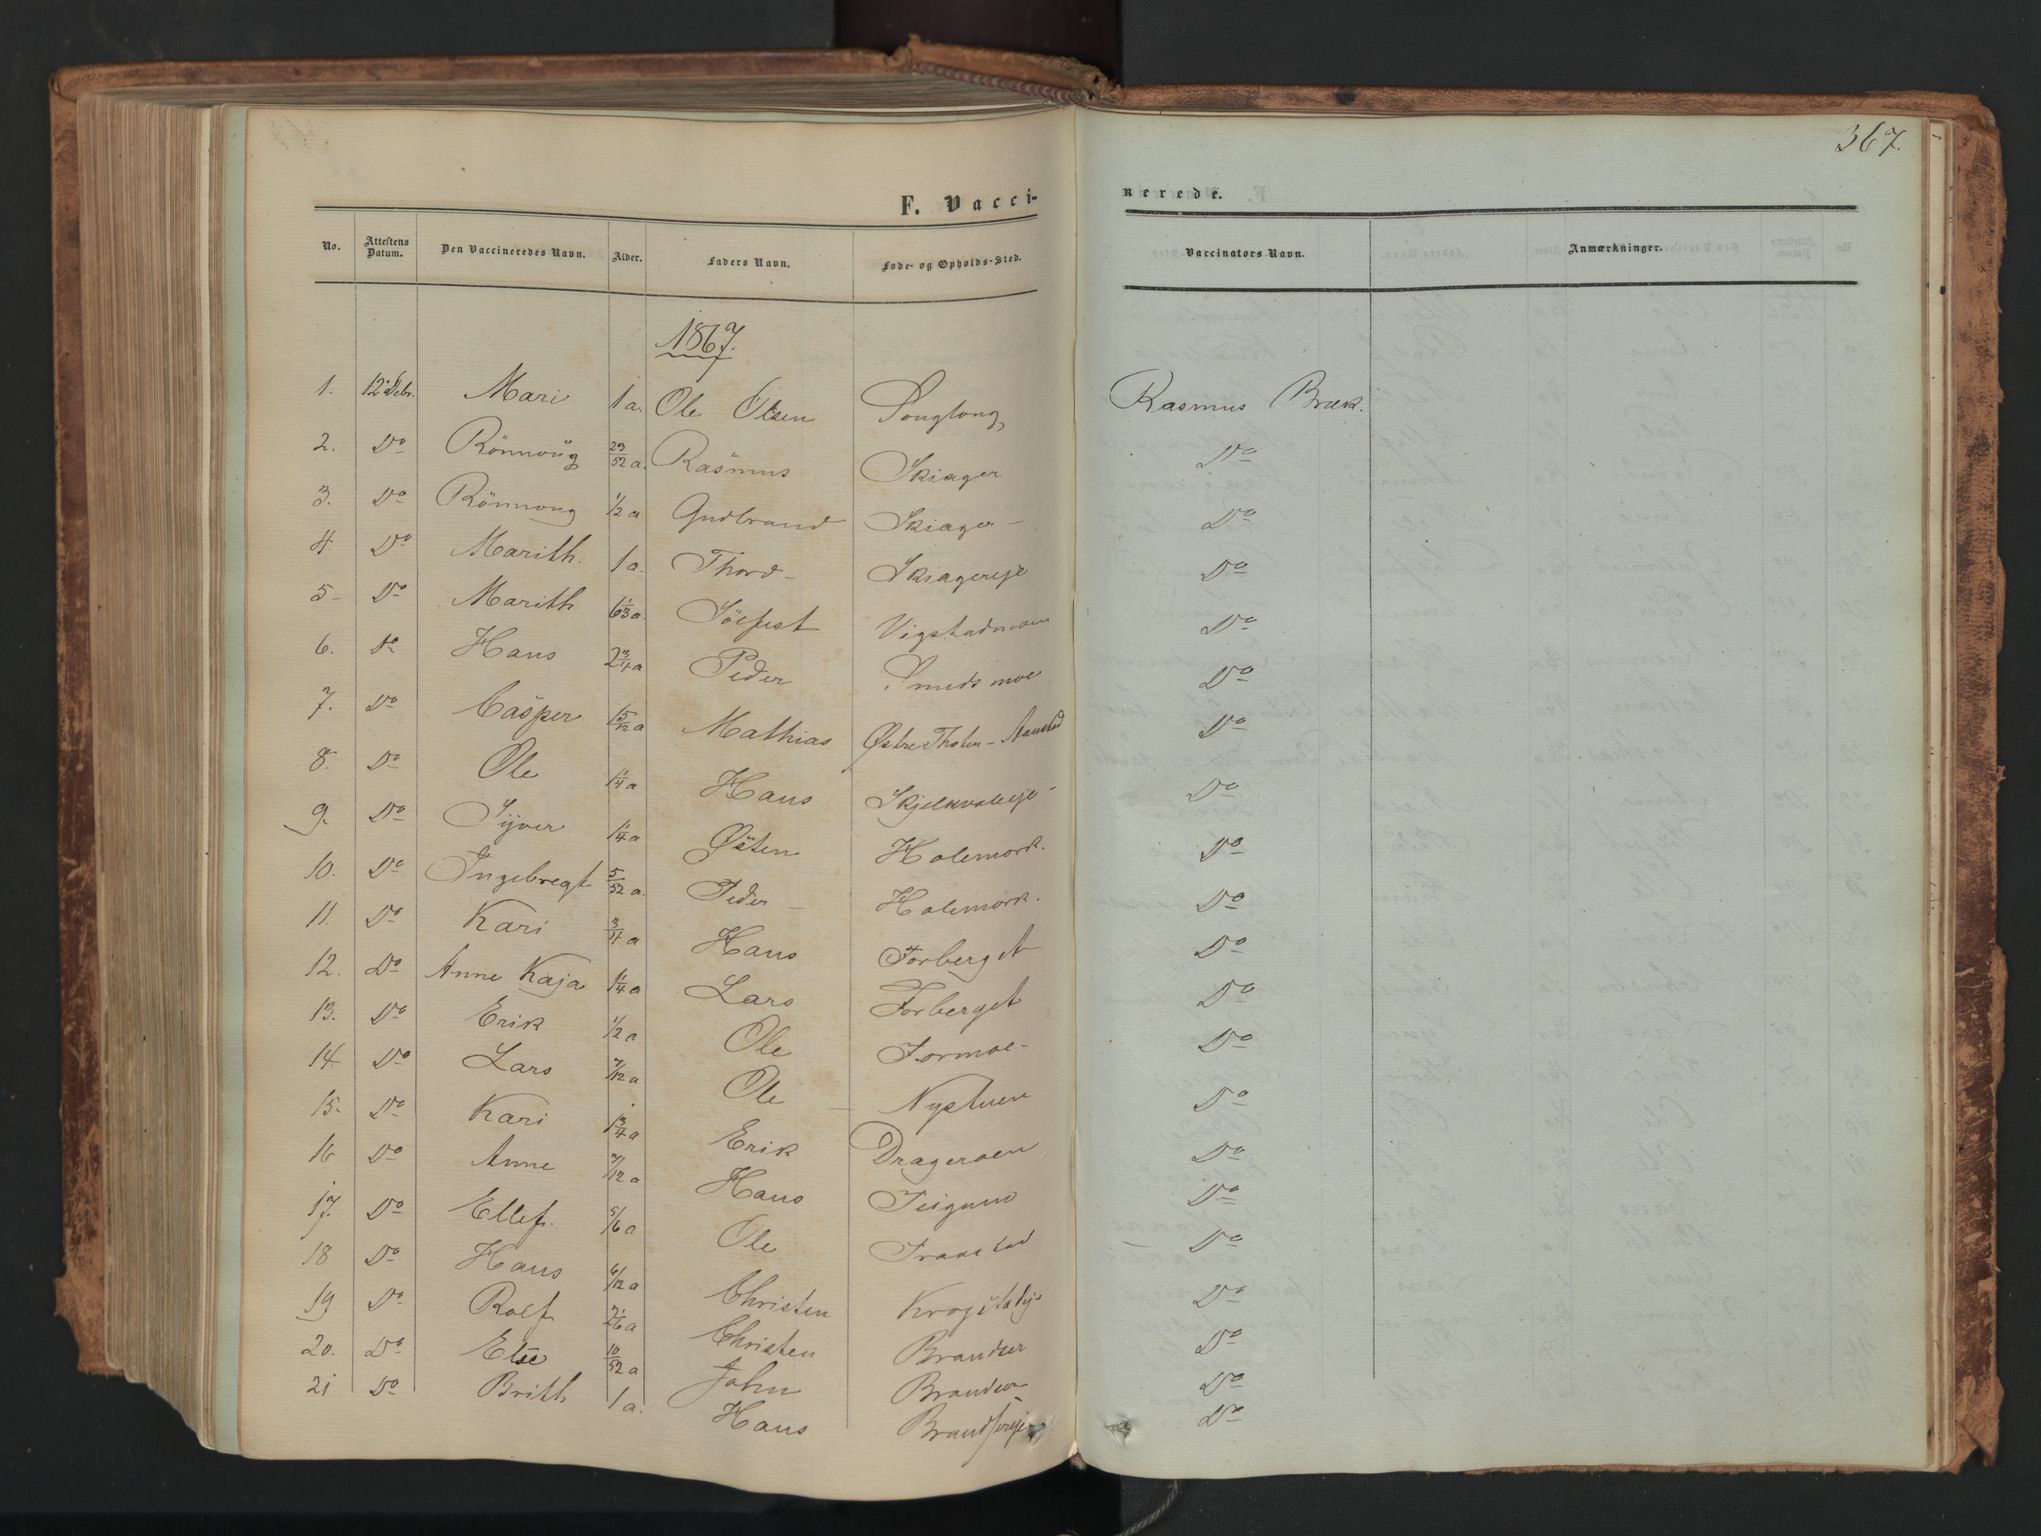 367.
F. Vacci-
nerede.
No. Attestens Datum. Den Vaccineredes Navn. Alder. Faders Navn. Føde- og Opholds-Sted. Vaccinators Navn. Anmærkninger.
1867.
1. 12 Mari 1 a. Ole Olsen Rasmus Bræk.
2. Do Rönnoug 23/52 a. Rasmus Skiager Do
3. Do Rönnoug 1/2 a Gudbrand Skiager Do
4. Do Marith. 1 a. Thord Skiagereje Do
5 Do Marith 6 1/3 a. Vigstadmoen Do
6. Do Hans 2 3/4 a Peder Smedsmoe Do
7. Do Casper 1 5/12 a Mathias Østre Thoten - Aanstad Do
8. Do Ole 1 1/4 a Hans Skjelkvaleeje Do
9. Do Syver 1 1/4 a Østen Holemork. Do
10. Do Ingebregt 5/52 a. Peder Holemork. Do
11. Do Kari 3/4 a Hans Forberget Do
12. Do Anne Kaja 1 1/4 a Lars Forberget Do
13. Do Erik 1/2 a Ole Formoe Do
14. Do Lars 7/12 a Ole Nystuen Do
15. Do Kari 1 3/4 a Erik Drageroen Do
16 Do Anne 7/12 a Hans Teigum Do
17. Do Ellef. 5/6 a Ole Do
18 Do Hans 6/12 a Christen Do
19 Do Rolf 2 1/6 a Christen Brandser Do
20. Do Else 10/52 a John Brandser Do
21 Do Brith 1 a. Hans Do